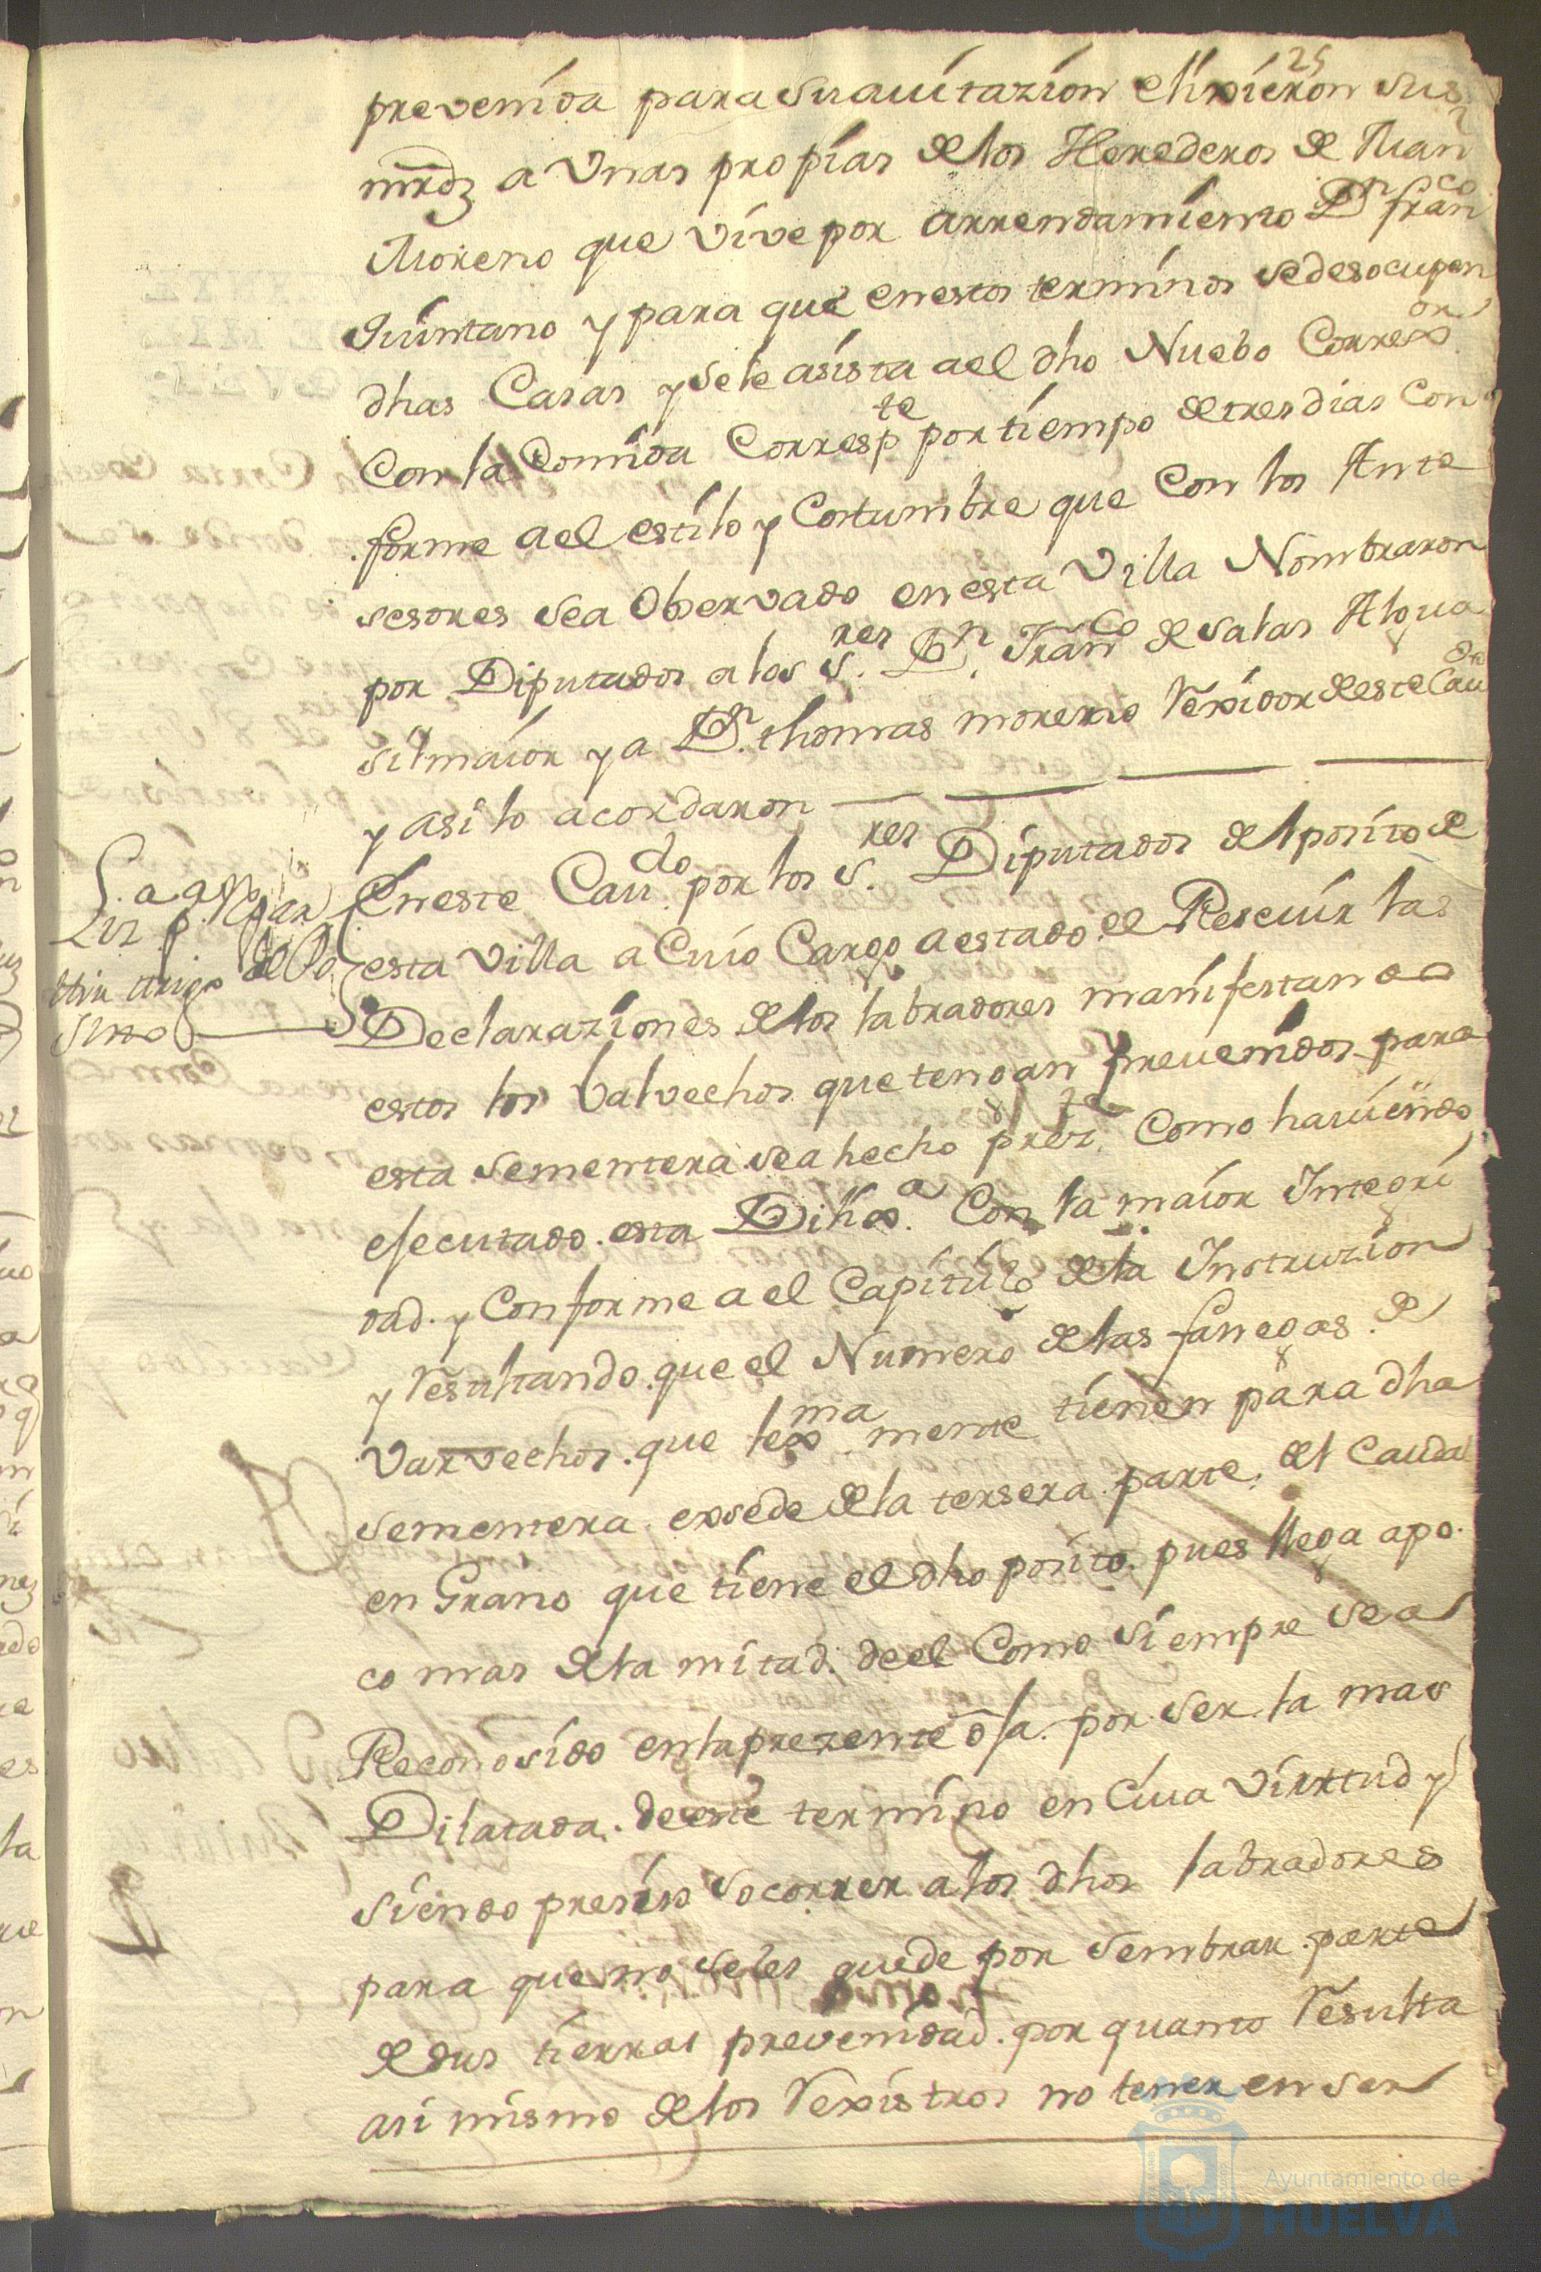 25
prevenida para su auitazion elixieron sus
mrdz a Vnas propias de los Herederos de Juan
Moreno que vive por arrendamiento Dn franco
Quintano y para que en estos terminos se desocupen
dhas Casas y se le asista a el dho Nuebo Correxor
Con la Comida Correspte por tiempo de tres dias Con
forme a el estilo y Costumbre que Con los Ante
sesores sea Observado en esta Villa Nombraron
por Diputados a los Sres Dn Franco de salas Algua
sil maior y a Dn thomas moreno Rexidor de este Caudo
y asi lo acordaron
En este Caudo por los Sres Diputados del posito de
esta Villa a Cuio Cargo a estado el Reseuir las
Declaraziones de los labradores manifestando
estos los balvechos que tengan prevenidos para
esta sementera sea hecho prezte Como hauiendo
esecutado esta Dilixa Con la maior Integri
dad y Conforme a el Capitulo de la Instruzion
y Resultando que el Numero de las fanegas de
Varvechos que lexmamente tienen para dha
sementera exsede de la tersera parte del Cauda
en Grano que tiene el dho posito pues llega a po
co mas de la mitad de el Como siempre sea
Reconosido en la prezente osa por ser la mas
Dilatada de este termino en Cuia Virttud y
siendo presiso socorrer a los dhos labradores
para que no se les quede por sembrar parte
de sus tierras prevenidas por quanto Resulta
asi mismo de los Rexistros no tener en ser
de Po
sito
Ayuntamiento de
HUELVA